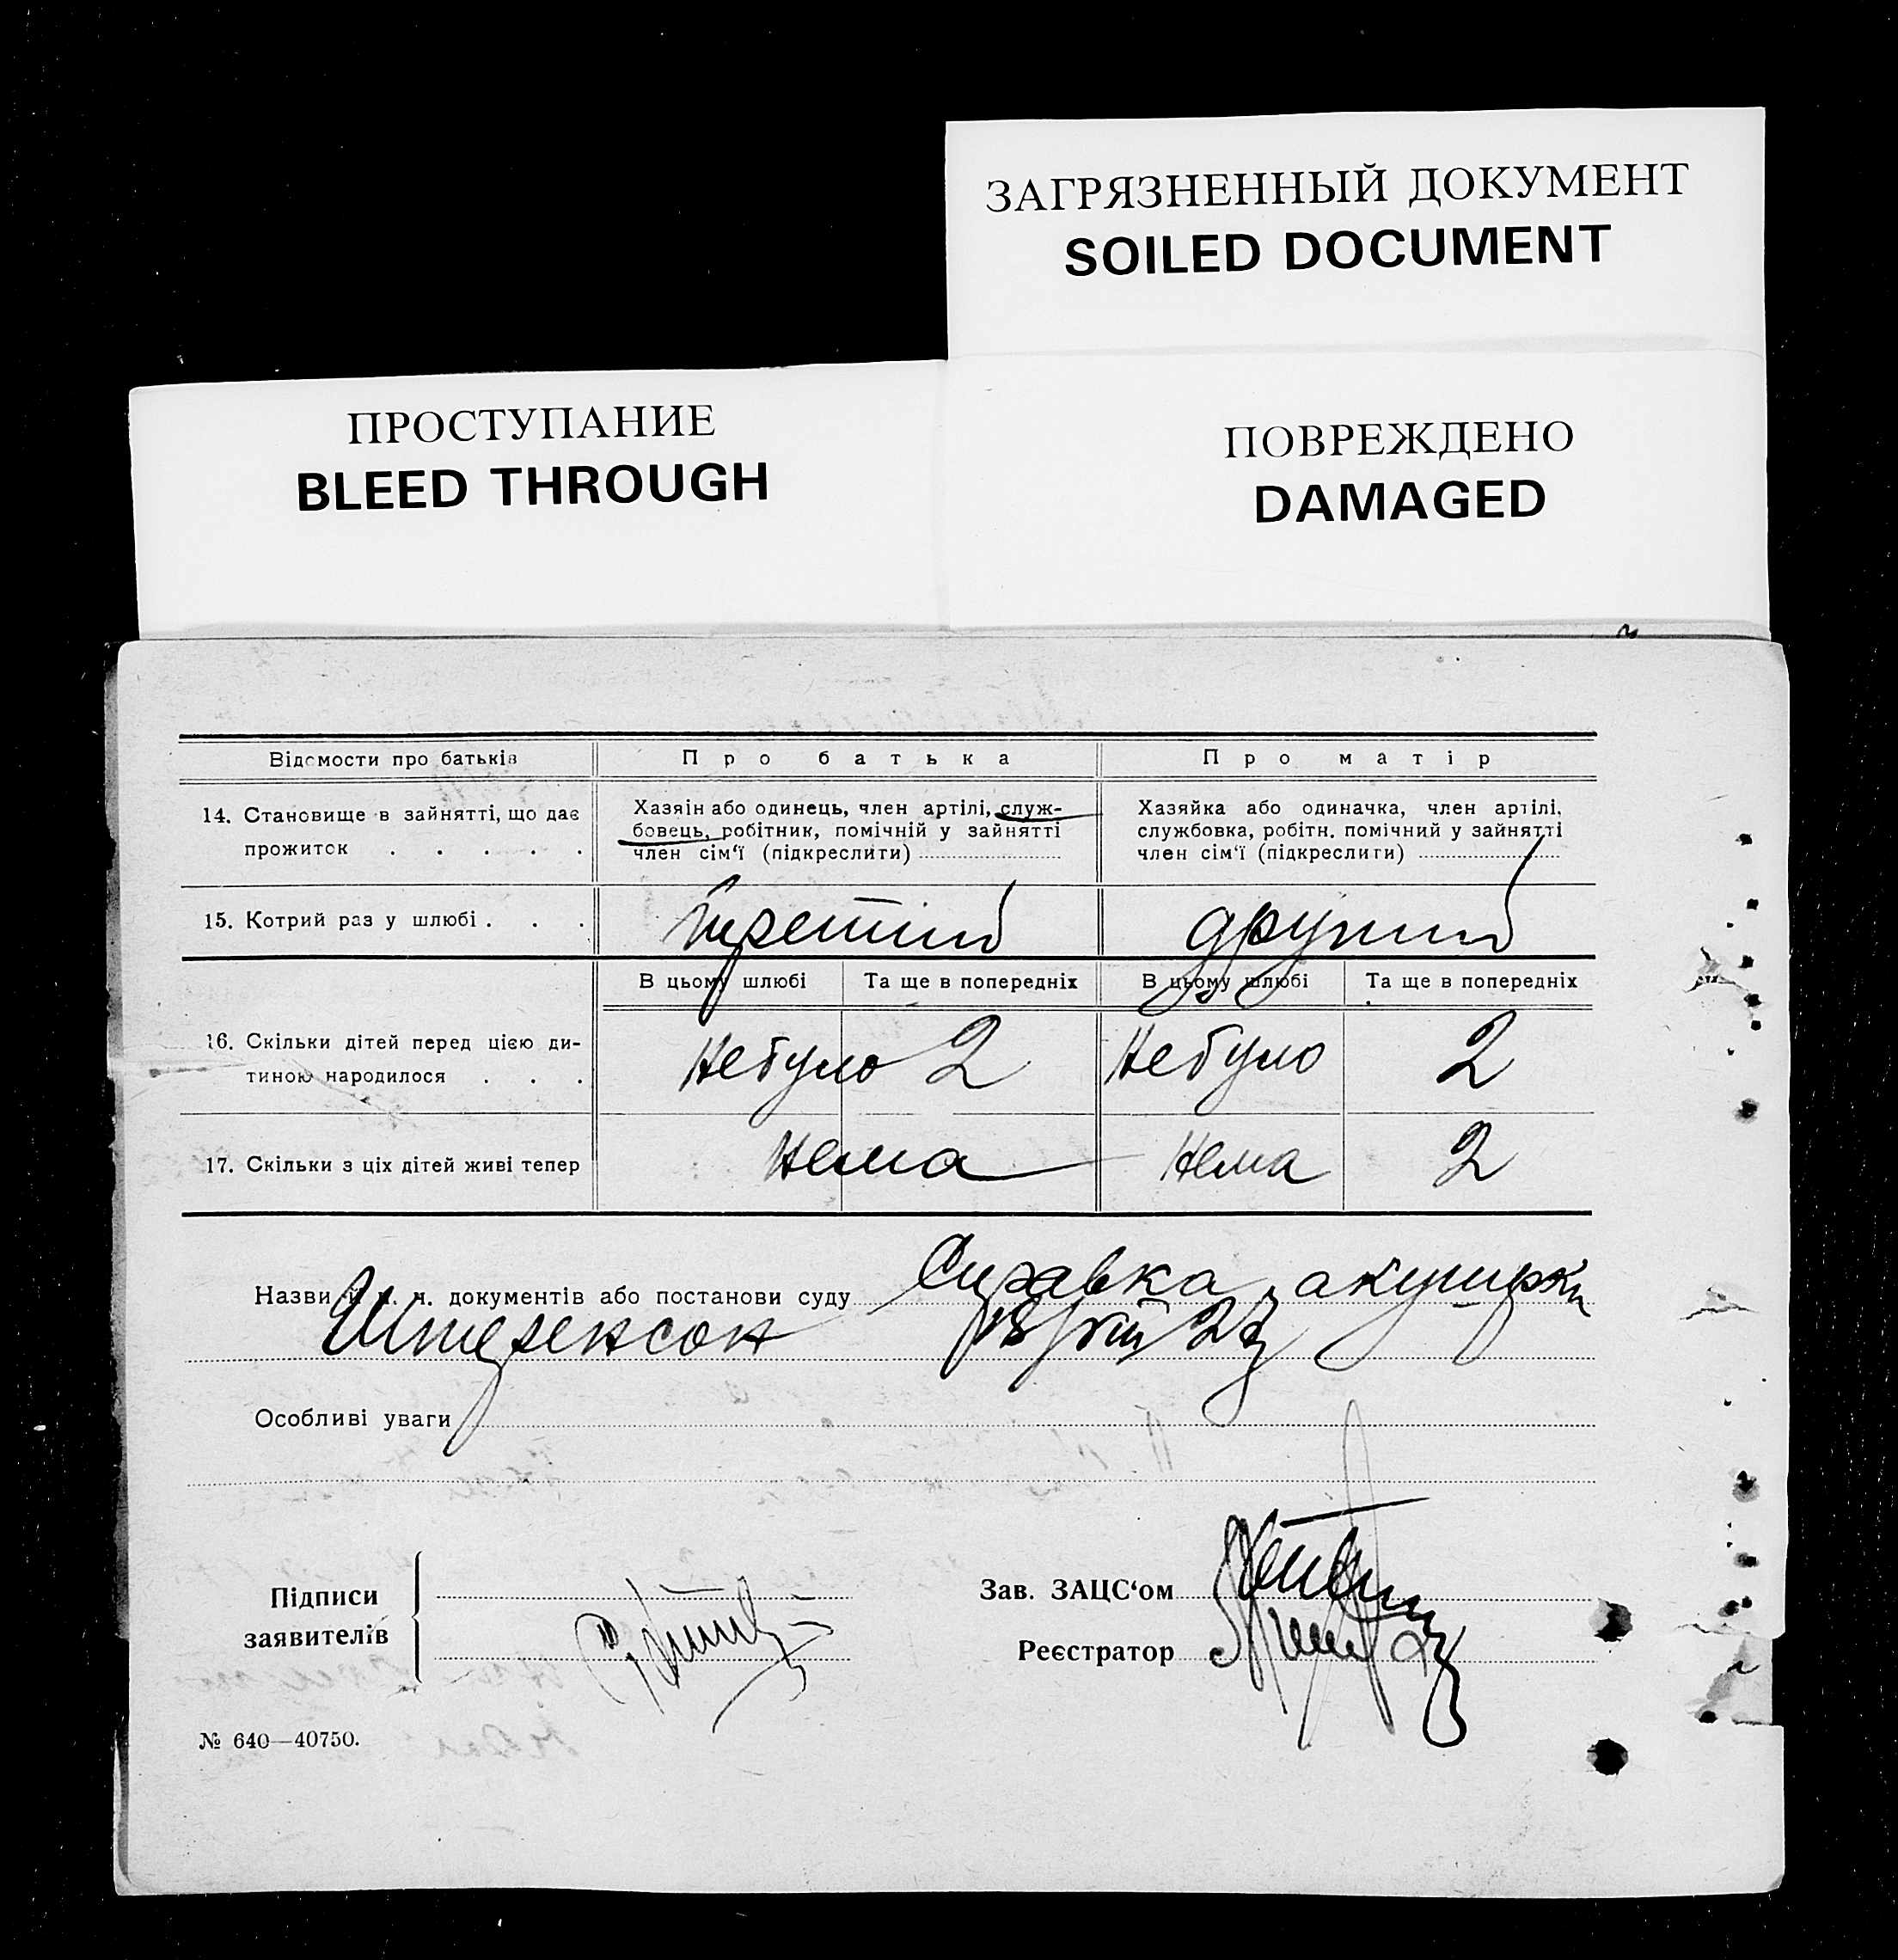 ЗАГРЯЗНЕННЫЙ ДОКУМЕНТ
SOILED DOCUMENT
ПРОСТУПАНИЕ
BLEED THROUGH
ПОВРЕЖДЕНО
DAMAGED
Відомости про батьків
Про батька
Про матір
14. Становище в зайнятті, що дає
прожиток . . . . .
Хазяїн або одинець, член артілі, служ-
бовець, робітник, помічній у зайнятті
член сім‘ї (підкреслити)
Хазяйка або одиначка, член артілі,
службовка, робітн. помічний у зайнятті
член сім‘ї (підкреслити)
15. Котрий раз у шлюбі . . .
третій
другий
В цьому шлюбі
Та ще в попередніх
В цьому шлюбі
Та ще в попередніх
16. Скільки дітей перед цією ди-
тиною народилося . . .
Небуло
2
Небуло
2
17. Скільки з ціх дітей живі тепер
Нема
Нема
2
Назви й ч. ч. документів або постанови суду Справка акушерки
Особливі уваги
Підписи
заявителів
Зав. ЗАЦС‘ом
Реєстратор
№ 640—40750.